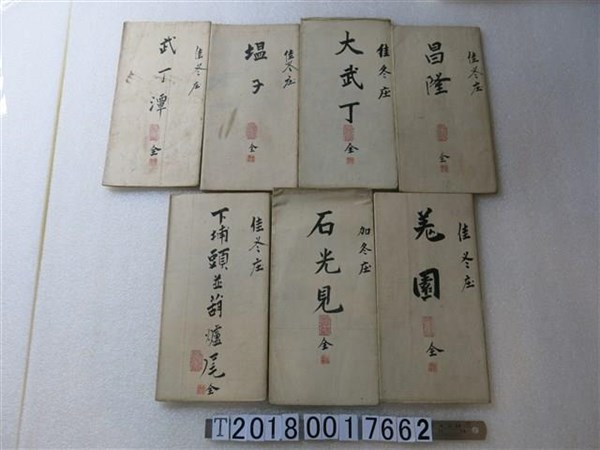 佳冬庄
武丁潭
全
佳冬庄
塭子
全
佳冬庄
大武丁
全
佳冬庄
昌隆
全
佳冬庄
下埔頭並葫爐尾
全
加冬庄
石光見
全
佳冬庄
羗園
全
T20180017662